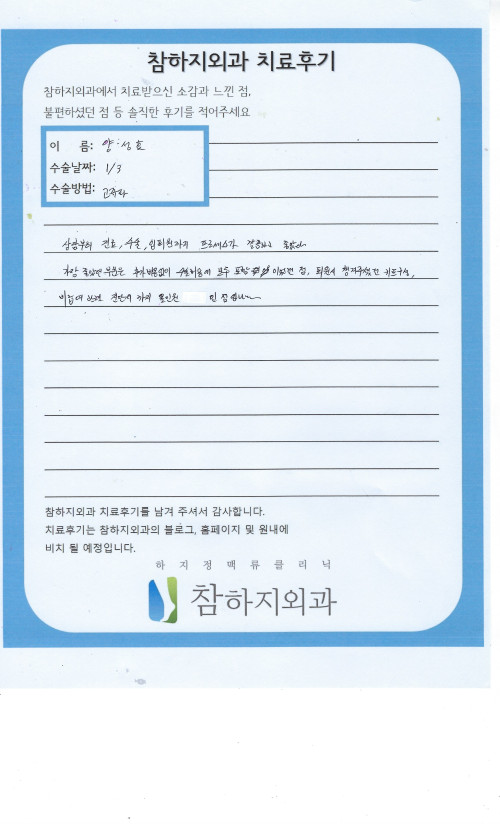 참하지외과 치료후기
참하지외과에서 치료받으신 소감과 느낀 점,
불편하셨던 점 등 솔직한 후기를 적어주세요
이 름: 양·성호
수술날짜: 1/3
수술방법: 고주파
상담부터 진료, 수술, 입퇴원까지 프로세스가
가장 좋았던 부분은 추가비용없이 수술비용에 모두 포함 이었던 점, 퇴원시 챙겨주셨던 키트구성,
까지 할인된 인점
참하지외과 치료후기를 남겨 주셔서 감사합니다.
치료후기는 참하지외과의 블로그, 홈페이지 및 원내에
비치 될 예정입니다.
하지정맥류클리닉
참하지외과